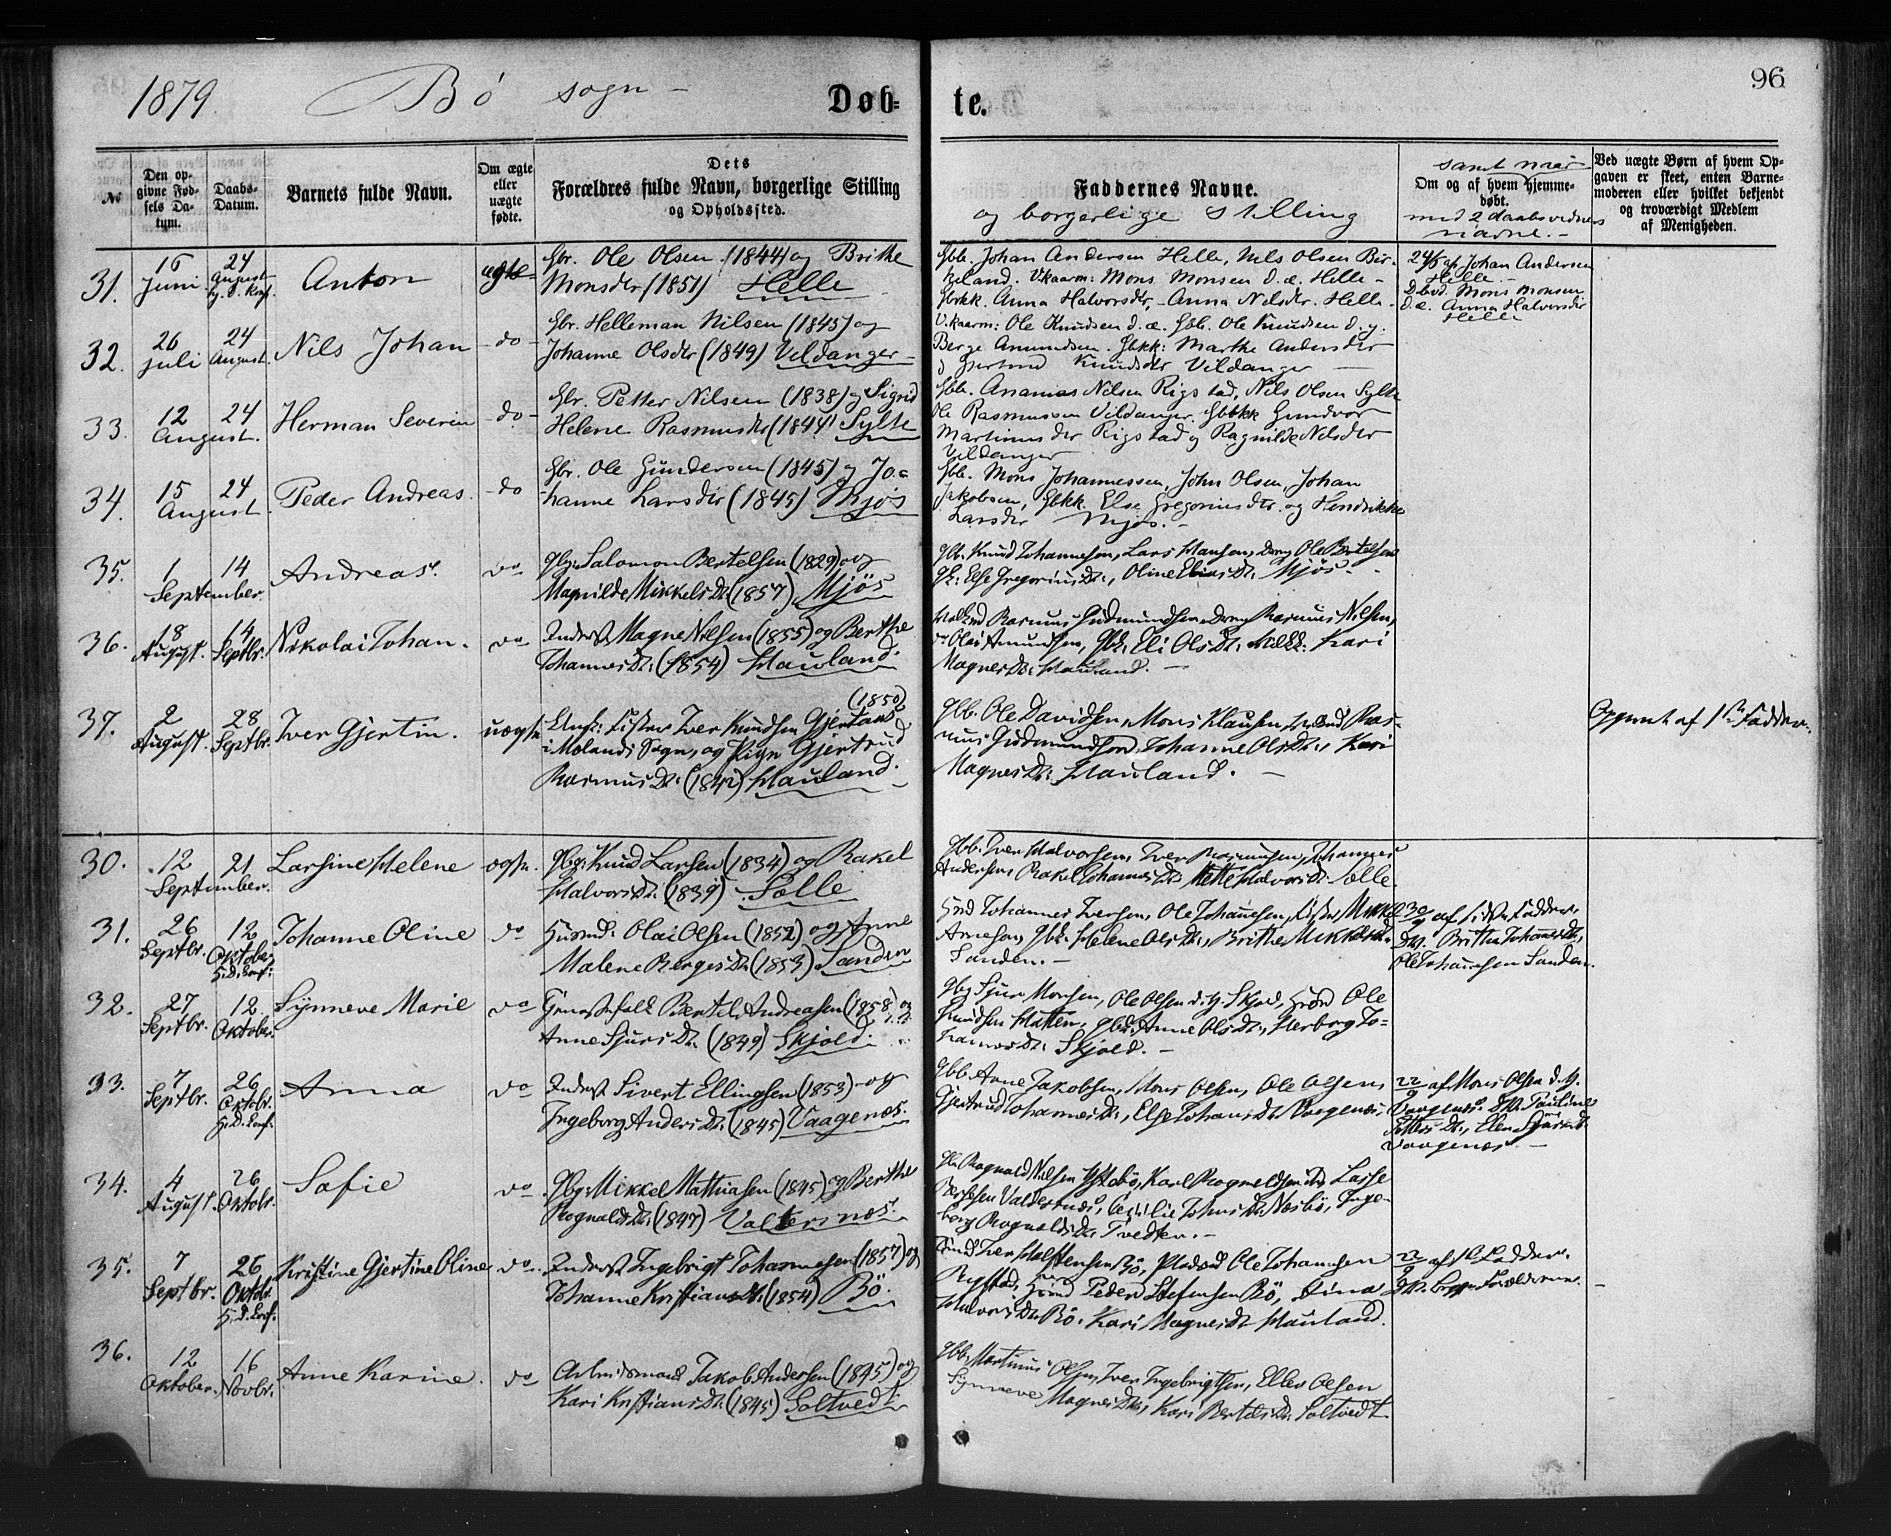 1879. Bö sogn – Døb- te. 96
No
Den opgivne Fødsels Datum.
Daabs-Datum.
Barnets fulde Navn.
Om ægte eller uægte fødte.
Dets Forældres fulde Navn, borgerlige Stilling og Opholdsted.
Faddernes Navne.
og borgerlige Stilling
samt naar
Om og af hvem hjemmedøbt.
med 2 daabsvidners navne. –
Ved uægte Børn af hvem Opgaven er skeet, enten Barnemoderen eller hvilket bekjendt og troværdigt Medlem af Menigheden.
31. 16 Juni 24 August Anton ægte
Gbr. Ole Olsen (1844) og Brithe
Monsdtr (1851) Helle
Gbb. Johan Andersen Helle, Nils Olsen Bir-
keland. Ukaarm: Mons Monsen d. æ. Helle –
Gbkk. Anna Halvorsdtr, Anna Nilsdtr. Helle –
24/6 af Johan Andersen
Helle
Dbvd. Mons Monsen
d. æ. Anna Halvorsdtr
Helle
32. 26 juli 24 August Nils Johan do
Gbr. Helleman Nilsen (1845) og
Johanne Olsdtr (1849) Vildanger –
Ukaarm: Ole Knudsen d. æ. Gbb. Ole Knudsen d. y.
Berge Amundsen. Gbkk: Marthe Andersdtr
og Gjertrud Knudsdtr Vildanger
33. 12 August 24 August. Herman Severin do
Gbr. Petter Nilsen (1838) og Sigrid
Helene Rasmusdtr (1844) Sylte
Gbb. Ananias Nilsen Rigstad, Nils Olsen Sylte
Ole Rasmussen Vildanger. Gbkk Gundvor
Martinusdtr Rigstad og Ragnilde Nilsdtr
Vildanger
34. 15 August 24 August. Peder Andreas. do
Gbr. Ole Gundersen (1845) og Jo-
hanne Larsdtr (1845) Mjøs
Gbb. Mons Johannessen, John Olsen, Johan
Jakobsen, Gbkk. Else Gregoriusdtr. og Hendrikke
Larsdtr Mjøs. –
35. 1 September 14 Andreas. do
Gbr. Salomon Bertelsen (1829) og
Magnilde Mikkels Dt. (1857) Mjös
Gbb. Knud Johannesen, Lars Hansen, Dreng Ole Bertelsen
Gk: Else Gregorius Dt., Oline Elias Dt. Mjös. –
36. 18 August. 14 Septbr. Nikolai Johan. do
Inderst Magne Nilsen (1855) og Berthe
Johannes Dt. (1854) Hauland.
Rasmus Gudmundsen, Dreng Rasmus Nilsen,
Olai Amundsen, Gbk. Eli Ols Dt. Kari
Magnes Dt. Hauland. –
37. 2 August. 28 Septbr. Iver Gjertin. uægte
Fisker Iver Knudsen Gjertøens (1850)
i Mølands Sogn, og Pige Gjertrud
Rasmus Dt. (1842) Hauland.
Gbb. Ole Davidsen, Mons Klausen, Ras-
mus Gudmundsen, Johanne Ols Dt., Kari
Magnes Dt. Hauland. –
Opgivet af 1ste Fadder.
30. 12 September. 21 Larsine Helene ægte.
Gbr. Knud Larsen (1834) og Rakel
Halvors Dt. (1839) Sælle
Gbb. Iver Halvorsen, Iver Rasmusen, Johannes
Andersen, Rakel Johannes Dt., Mette Halvors Dt. Sælle.
31. 26 Septbr. 12 Oktober Johanne Oline do
Husmd. Olai Olsen (1852) og Anne
Malene Berges Dt. (1853) Sanden
Husmd Johannes Iversen, Ole Johannesen, Mikkel
Arnesen, Gbk. Helene Ols Dt., Brithe Mikkels Dt.
Sanden. –
30/9 af sidste Fadder,
DV. Brithe Johannes Dt.,
Ole Johannesen Sanden.
32. 27 Septbr. 12 Oktober. Synneve Marie do
Bertel Andreasen (1858) og
Anne Sjurs Dt. (1849) Skjold.
Gbb Sjur Monsen, Ole Olsen d. y. Skjold, Husmd Ole
Knudsen Hatten, Gbk. Anne Ols Dt., Herborg Jo-
hannes Dt. Skjold. –
33. 7 Septbr. 26 Oktbr. Anna do
Inderst Sivert Ellingsen (1853) og
Ingeborg Anders Dt. (1845) Vaagenæs.
Gbb Arne Jakobsen, Mons Olsen, Ole Olsen,
Gjertrud Johannes Dt., Else Johans Dt. Vaagenæs.
22/9 af Mons Olsen d. y.
Vaagenæs. DV. Pauline
Petters Dt., Elen
Vaagenæs. –
34. 4 August. 26 Oktobr. Sofie do
Gbr. Mikkel Mathiasen (1845) og Berthe
Rognalds Dt. (1847) Valdersnæs.
Gbr. Rognald Nilsen Ystebö, Karl Rognaldsen, Lasse
Berthesen Valdersnæs, Cecilie Johns Dt. Næsbö, Inge-
borg Rognalds Dt. Tvedten. –
35. 7 Septbr. 26 Oktbr. Kristine Gjertine Oline do.
Inderst Ingebrigt Johannesen (1857) og
Johanne Kristians Dt. (1854) Bö.
Husmd Iver Halstensen Bö, Pladsmd Ole Johannesen
Rystad, Husmd Peder Stefensen Bö, Stina
Halvors Dt. Bö, Kari Magnes Dt. Hauland.
22/9 af 1ste Fadder.
DV. Forældrene.
36. 12 Oktober. 16 Novbr. Anne Karine. do
Arbeidsmand Jakob Andersen (1845) og
Kari Kristians Dt. (1845) Soltvedt
Gbb. Martinus Olsen, Iver Ingebrigtsen, Ellev Olsen
Synneve Magnes Dt., Kari Bertels Dt. Soltvedt